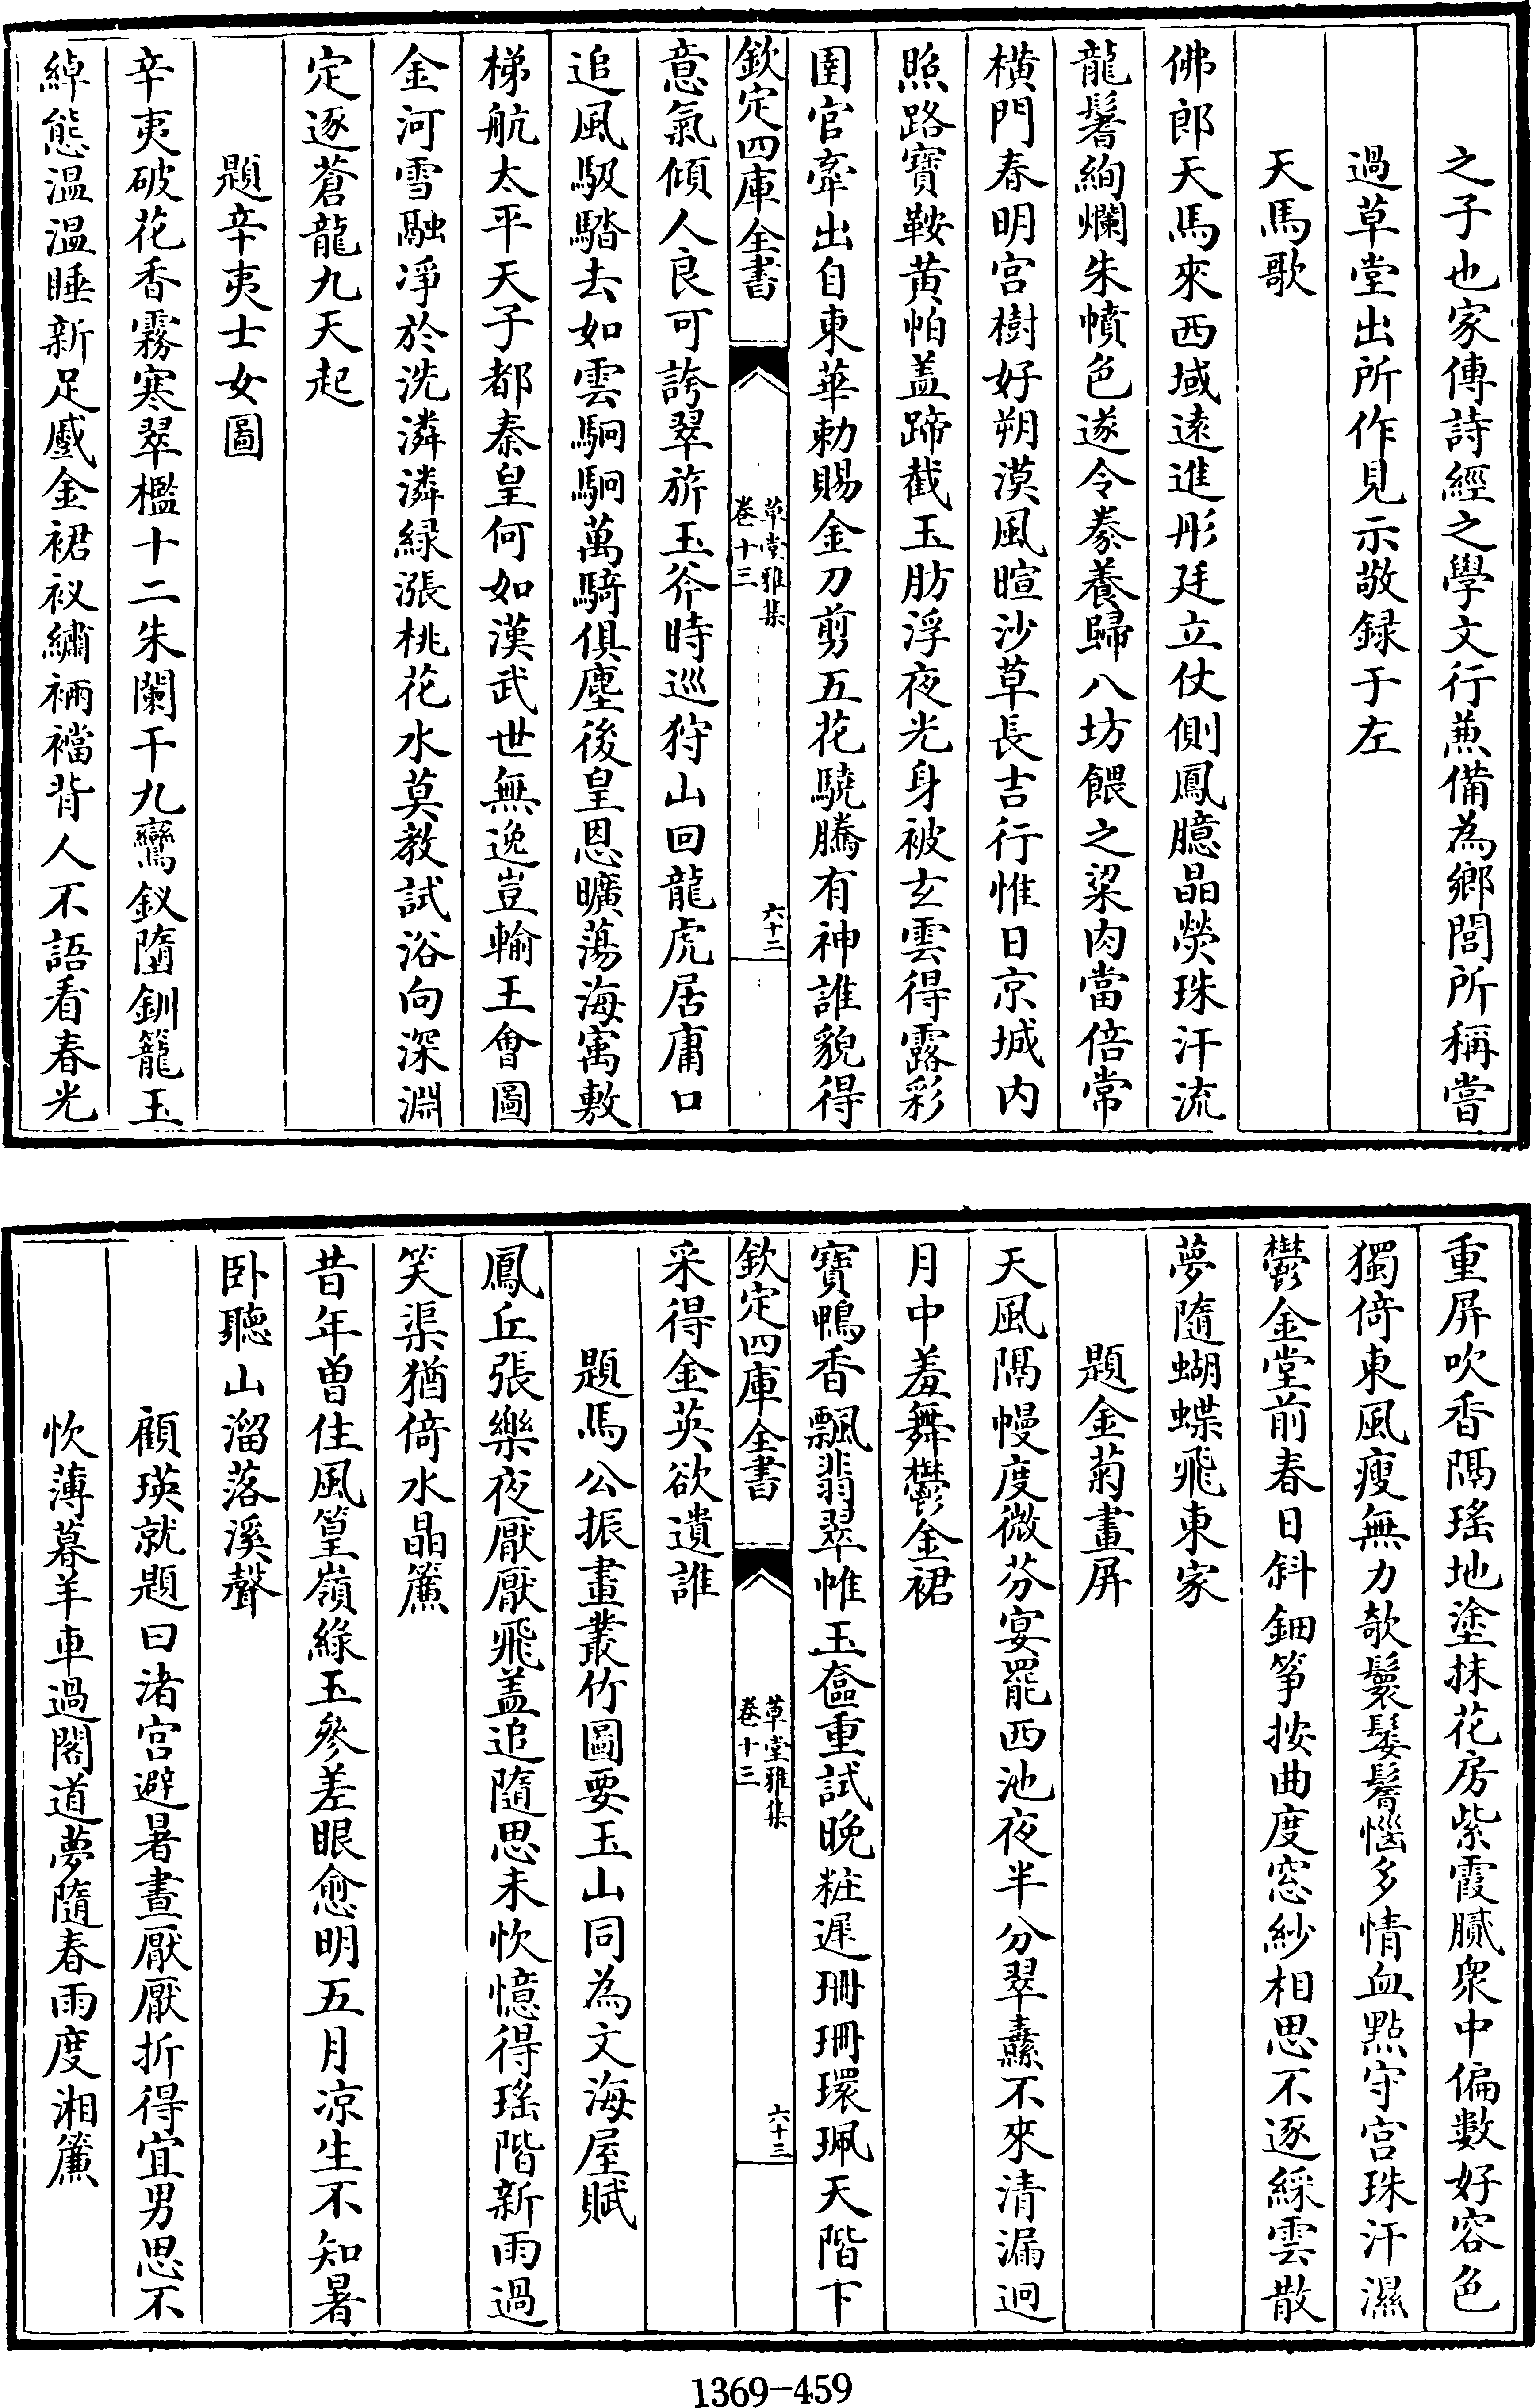 之子也家傳詩經之學文行兼備為鄉閭所稱嘗
過草堂出所作見示敬録于左
天馬歌
佛郎天馬來西域逺進彤廷立仗側鳳臆晶熒珠汗流
龍鬐絢爛朱幩色遂令豢養歸八坊餵之粱肉當倍常
横門春明宫樹好朔漠風暄沙草長吉行惟日京城内
照路寳鞍黄帕盖蹄截玉肪浮夜光身被玄雲得露彩
圉官牽出自東華勅賜金刀剪五花驍騰有神誰貌得
欽定四庫全書
草堂雅集
卷十三
六十二
意氣傾人良可誇翠旂玉斧時巡狩山回龍虎居庸口
追風馺踏去如雲駉駉萬騎俱塵後皇恩曠蕩海寓敷
梯航太平天子都秦皇何如漢武世無逸豈輸王會圖
金河雪融凈於洗潾潾緑漲桃花水莫教試浴向深淵
定逐蒼龍九天起
題辛夷士女圖
辛夷破花香霧寒翠檻十二朱闌干九鸞釵墮釧籠玉
綽態温温睡新足蹙金裙衩繡裲襠背人不語看春光
重屏吹香隔瑶地塗抹花房紫霞膩衆中偏數好容色
獨倚東風瘦無力欹鬟鬖髿惱多情血點守宫珠汗濕
鬱金堂前春日斜鈿筝按曲度窓紗相思不逐綵雲散
夢隨蝴蝶飛東家
題金菊畫屏
天風隔幔度微芬宴罷西池夜半分翠纛不來清漏迥
月中羞舞鬱金裙
寳鴨香飄翡翠帷玉奩重試晚粧遲珊珊環珮天階下
欽定四庫全書
草堂雅集
卷十三
六十三
采得金英欲遺誰
題馬公振畫叢竹圖要玉山同為文海屋賦
鳳丘張樂夜厭厭飛盖追隨思未忺憶得瑶階新雨過
笑渠猶倚水晶簾
昔年曽住風篁嶺綠玉參差眼愈明五月凉生不知暑
卧聽山溜落溪聲
顧瑛就題曰渚宫避暑晝厭厭折得宜男思不
忺薄暮羊車過閣道夢隨春雨度湘簾
1369-459